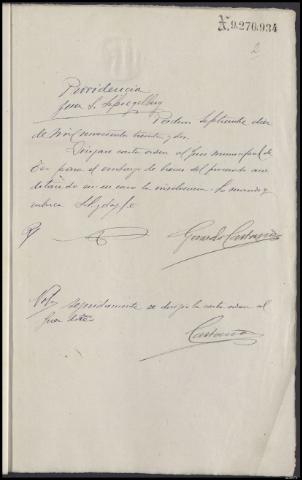 N.9.276.934
2
Providencia
Juez S.
Verdun Septiembre dos
de mil novecientos treinta y dos.
Dirijase carta orden al Juez municipal de
para el embargo de bienes del procesado
en su caso la insolvencia. Lo mandó y
rubrica S.Sª doy fe
Gerardo Castaños
Nota/ Seguidamente se dirige la carta orden al
Juez dicho
Castaños